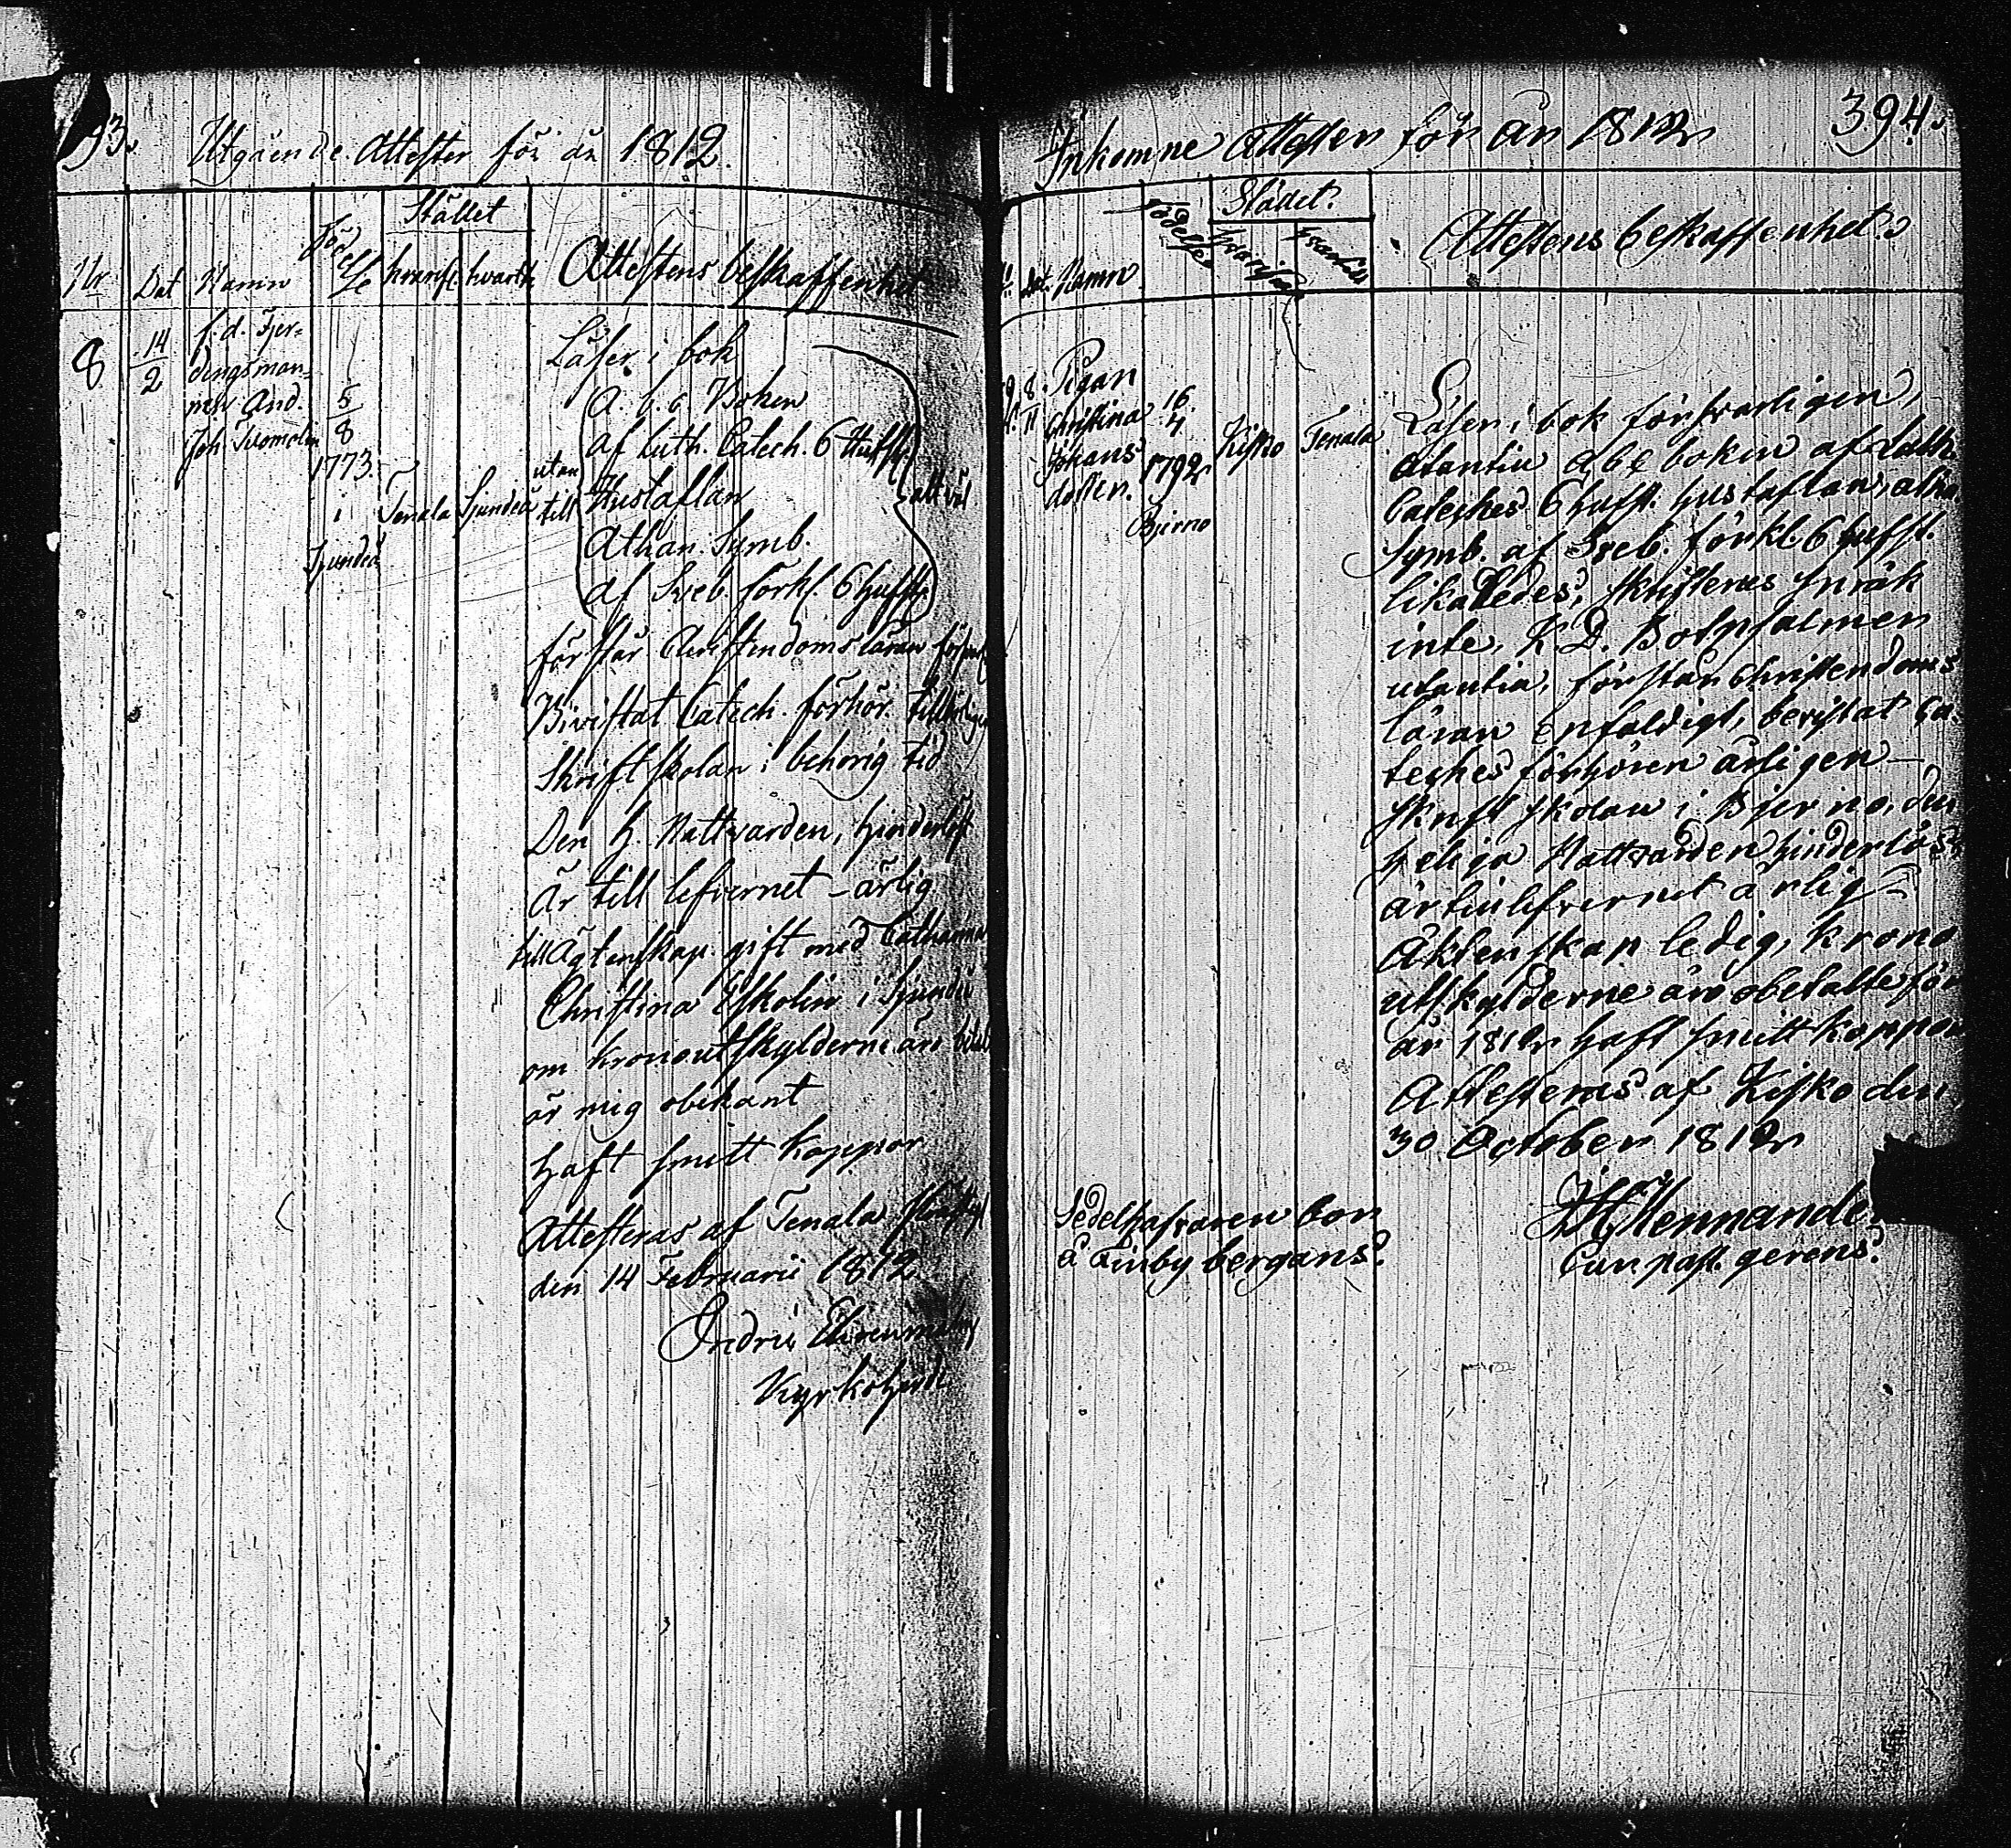 93.
Utgående Attester för år 1812.
Nr
Dat
Namn
Födelse
Stället
hvarifr.
hvarth.
Attestens beskaffenhet
8
14
2
f. d. Fjer-
dingsman-
nen And.
Joh
5
8
1773.
i
Sjundeå
Tenala
Sjundeå
Läser i bok
utan
till
A. b. c. Boken
af Luth. Catech. 6 Hufst.
Hustaflan
Athan. Symb.
af Sveb. förkl. 6 hufst.
allt väl
förstår Christendomsläran
Bivistat Catech. förhör
Skriftskolan i behörig tid
Den H. Nattvarden, hinderlöst
Är till lefvernet - ärlig
till Ägtenskap gift med Catharina
Christina Eskolin i Sjundeå
om kronoutskylderne äro betalt
är mig obekant
haft smitt koppor
Attesteras af Tenala
den 14 Februarii 1812
Kyrkoherde
394.
Inkomne Attester för år 1812
Dat.
Namn.
Födelse
Städet.
hvarifrån
Attestens beskaffenhet.
9.
8.
11
Pigan
Christina
Johans
dotter.
16.
4
1792
Bjerno
Kisko
Tenala
Läser i bok försvarligen,
utantill abc boken af Luth.
Cateches 6 hufst. hustaflan, athan.
Symb. af Sveb. förkl. 6 hufst.
likaledes, skriftenes språk
inte, K. D. Botpsalmen
utantill, förstår Christendoms
läran Enfaldigt, bevistat Ca-
teches förhören årligen -
skriftskolan i Bjerno, den
heliga Nattvarden hinderlöst,
är till lefvernet ärlig
Äktenskap ledig, krono
utskylderne äro obetalte för
år 1812 haft smitt koppor
Attesteras af Kisko den
30 October 1812
Sedelhafvaren bor
å Finby bergans.
Cur past. gerens.